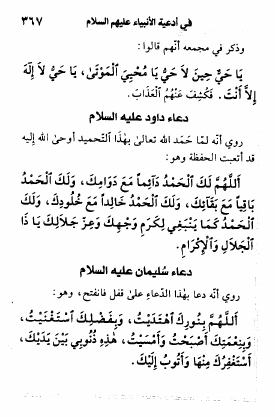 في أدعية الأنبياء عليهم السلام ٣٦٧
وذكر في مجمعه أنّهم قالوا:
يَا حَيُّ حِينَ لاَ حَيُّ يَا مُحْيِيَ ٱلْمَوْتَىٰ، يَا حَيُّ لاَ إِلٰهَ
إِلاَّ أَنْتَ. فَكُشِفَ عَنْهُمُ ٱلْعَذَابَ.
دعاء داود عليه السلام
روي أنّه لمّا حمّد الله تعالىٰ بهٰذا التّحميد أوحىٰ الله إليه
قد أتعبت الحفظة وهو:
اَللَّهُمَّ لَكَ ٱلْحَمْدُ دَآئِماً مَعَ دَوَامِكَ، وَلَكَ ٱلْحَمْدُ
بَاقِياً مَعَ بَقَائِكَ، وَلَكَ ٱلْحَمْدُ خَالِداً مَعَ خُلُودِكَ، وَلَكَ
ٱلْحَمْدُ كَمَا يَنْبَغِي لِكَرَمِ وَجْهِكَ وَعِزِّ جَلاَلِكَ يَا ذَا
ٱلْجَلاَلِ وَٱلْإِكْرَامِ.
دعاء سليمان عليه السلام
روي أنّه دعا بهٰذا الدّعاءِ علىٰ قفل فانفتح، وهو:
اَللَّهُمَّ بِنُورِكَ ٱهْتَدَيْتُ، وَبِفَضْلِكَ ٱسْتَغْنَيْتُ،
وَبِنِعْمَتِكَ أَصْبَحْتُ وَأَمْسَيْتُ، هٰذِهِ ذُنُوبِي بَيْنَ يَدَيْكَ،
أَسْتَغْفِرُكَ مِنْهَا وَأَتُوبُ إِلَيْكَ.